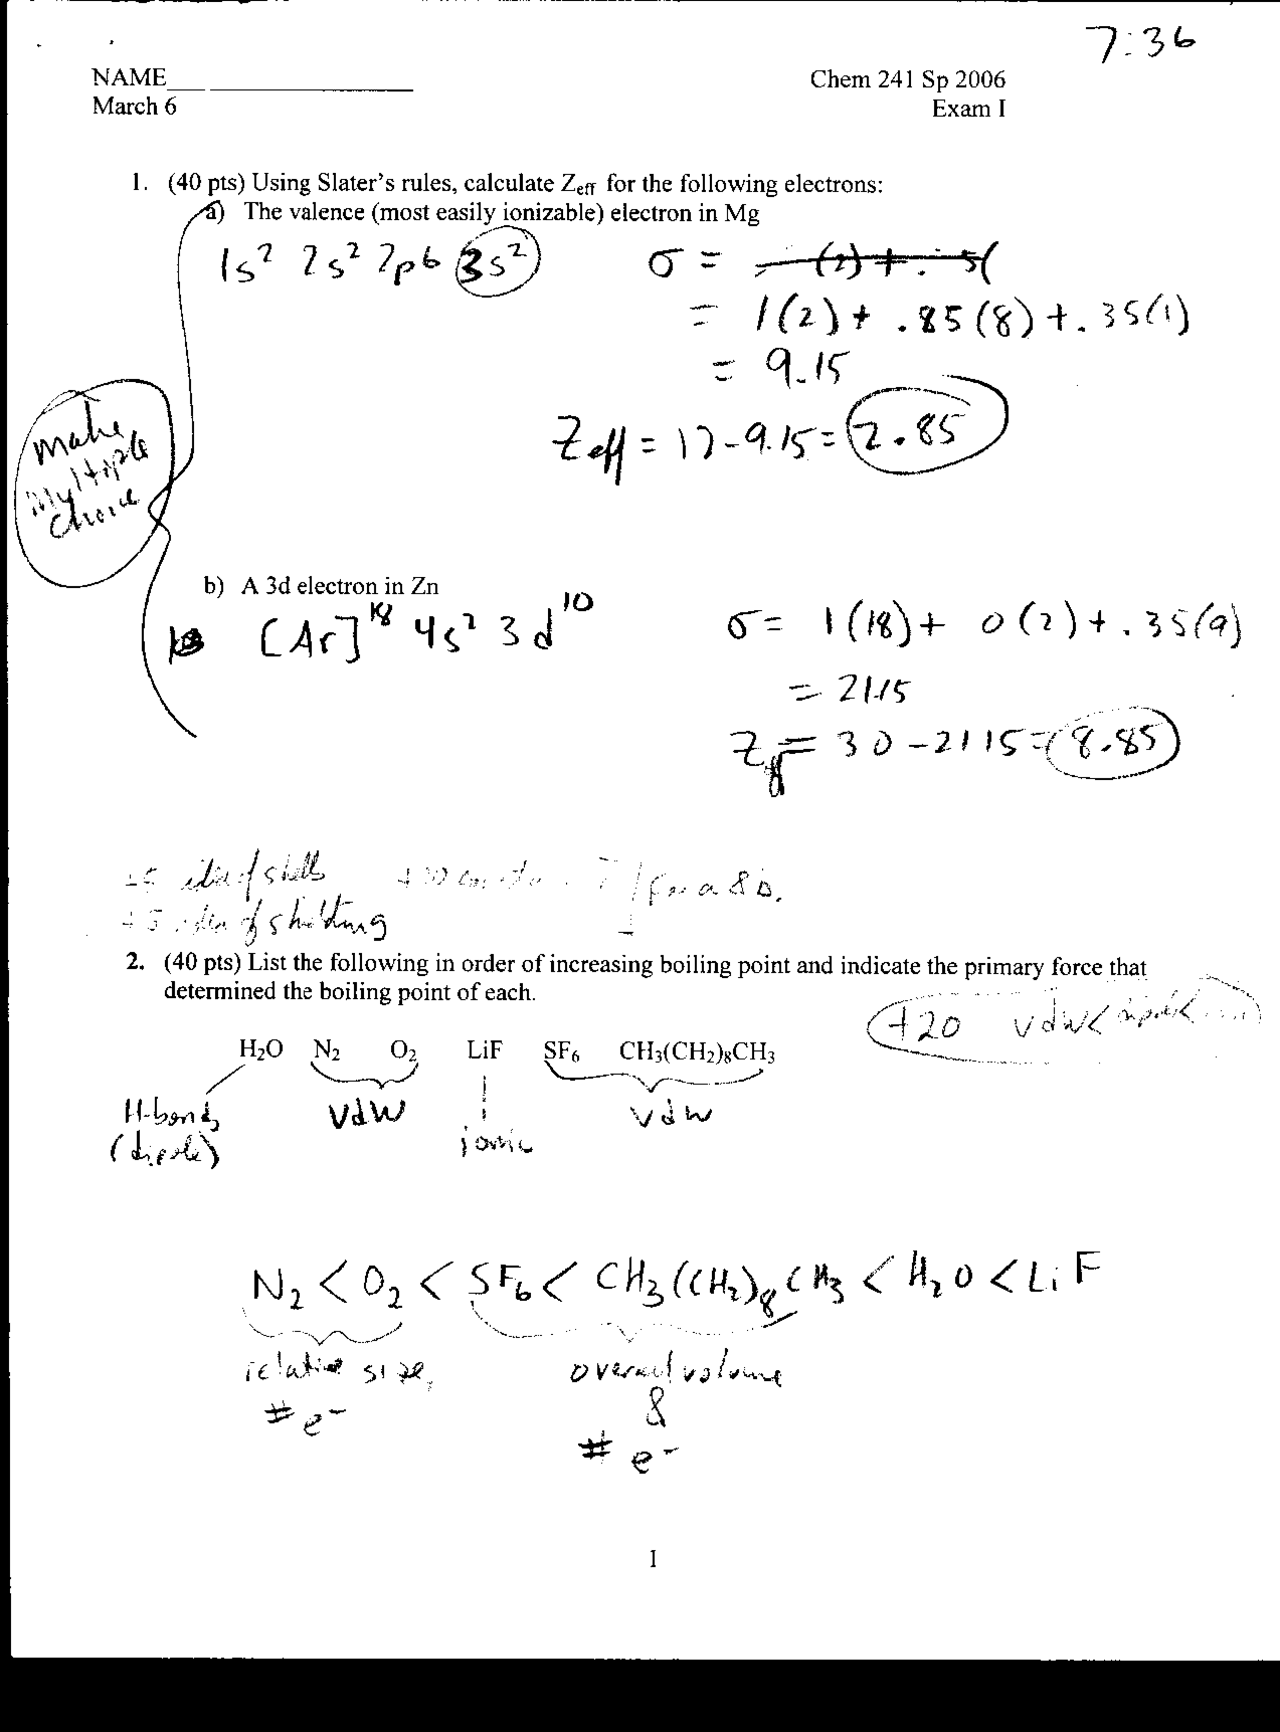 7:36
NAME____ ________________
Chem 241 Sp 2006
March 6
Exam I
1. (40 pts) Using Slater's rules, calculate Zeff for the following electrons:
a) The valence (most easily ionizable) electron in Mg
1s² 2s² 2p6 3s²
σ =
= 1(2) + .85(8) + .35(1)
= 9.15
Zeff = 12-9.15 = 2.85
Make
Multiple
Choice
b) A 3d electron in Zn
[Ar]¹⁸ 4s² 3d¹⁰
σ = 1(18) + 0(2) + .35(9)
= 21.15
Zeff = 30 - 21 15 = 8.85
idea of shells
+5 idea of shielding
for a & b.
2. (40 pts) List the following in order of increasing boiling point and indicate the primary force that
determined the boiling point of each.
+20 vdw < dipole <
H₂O N₂ O₂ LiF SF₆ CH₃(CH₂)₈CH₃
H-bond,
(dipole)
vdW
ionic
vdw
N₂ < O₂ < SF₆ < CH₃(CH₂)₈CH₃ < H₂O < LiF
relative size,
# e-
overall volume
&
# e-
1